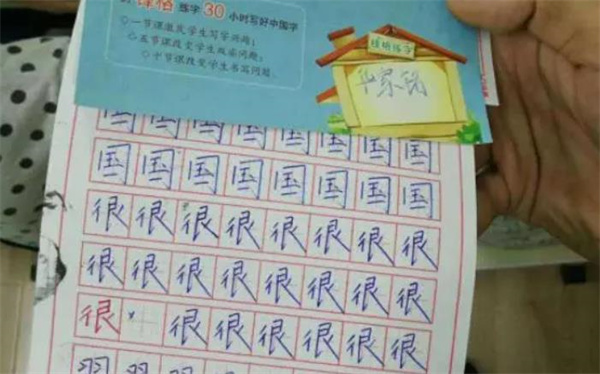 练字30小时写好中国字
◇一节课激发学生写字兴趣;
◇五节课改变学生双姿问题;
◇十节课改变学生书写问题.
练字
国国国国国国国国
国国国国国国国国
很很很很很很很很
很很很很很很很很
很 很很很很很很